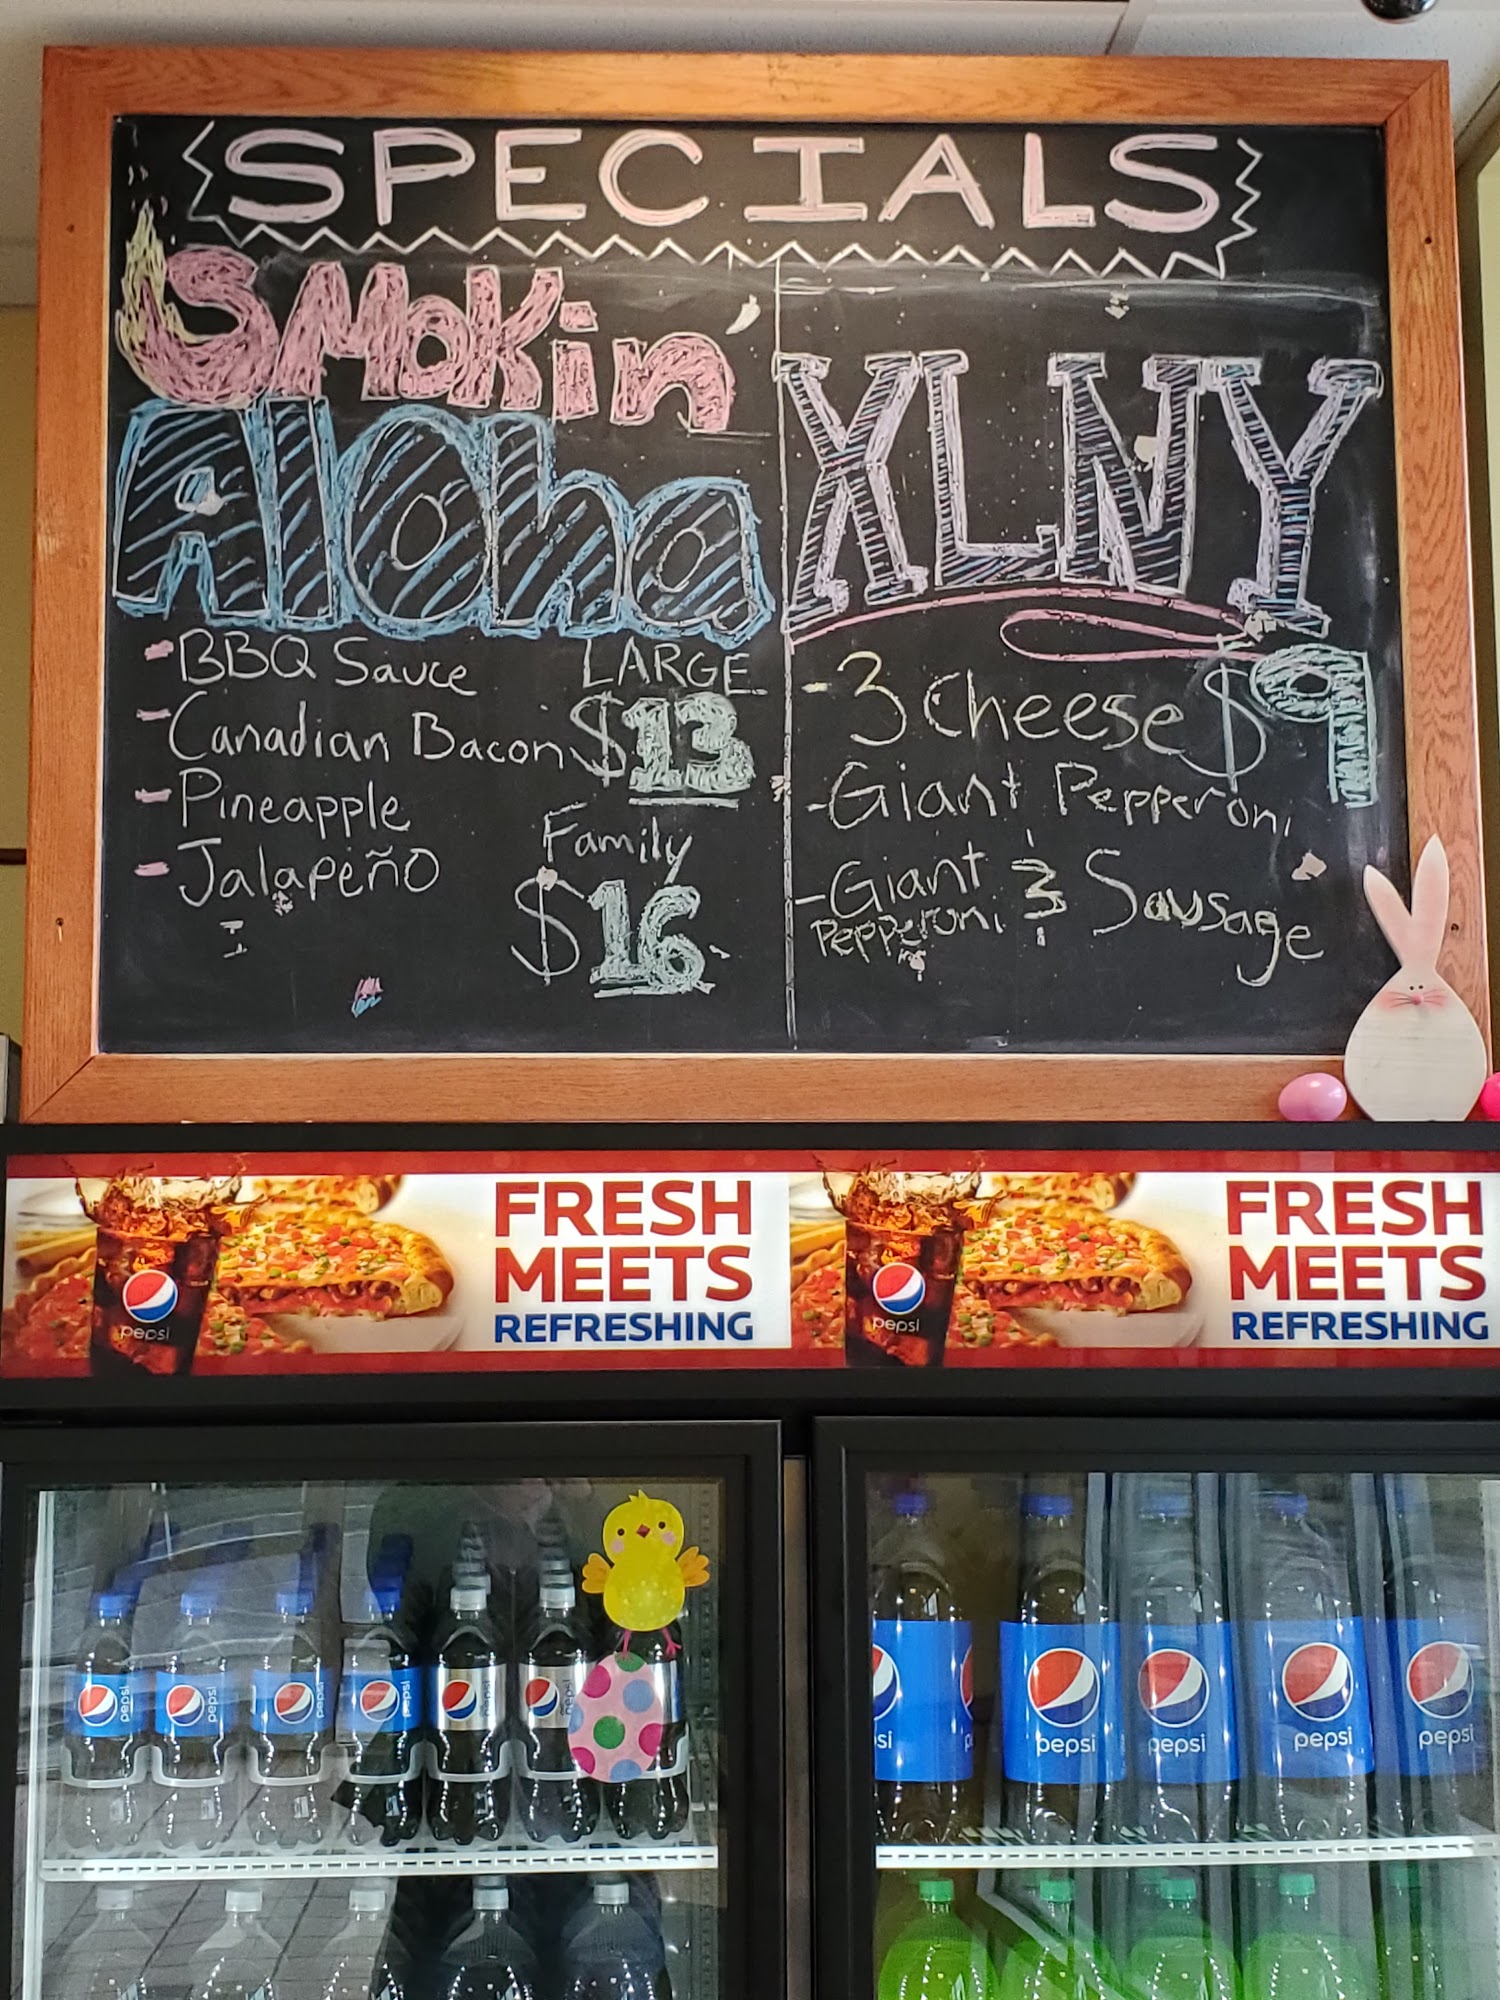 SPECIALS
SMOKin'
Aloha
- BBQ Sauce
- Canadian Bacon
- Pineapple
- Jalapeño
LARGE
$13
Family
$16
XLNY
$9
- 3 Cheese
- Giant Pepperoni
- Giant Pepperoni & Sausage
FRESH
MEETS
REFRESHING
pepsi
FRESH
MEETS
REFRESHING
pepsi
pepsi
pepsi
pepsi
pepsi
pepsi
pepsi
si
pepsi
pepsi
pepsi
pepsi